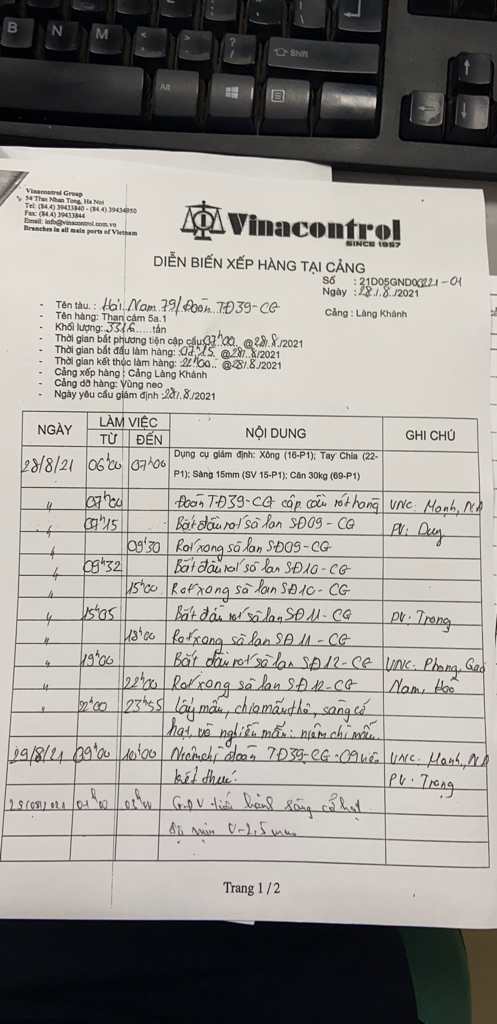 B N M < > ? / Shift
Alt
Vinacontrol Group
54 Tran Nhan Tong, Ha Noi
Tel: (84.4) 39433840 - (84.4) 39434950
Fax: (84.4) 39433844
Email: info@vinacontrol.com.vn
Branches in all main ports of Vietnam
Vinacontrol
SINCE 1957
DIỄN BIẾN XẾP HÀNG TẠI CẢNG
Số : 21D05GND00221-01
Ngày : 28/.8./2021
- Tên tàu. : Hải Nam 79/Đoàn TĐ39-CG
Cảng : Làng Khánh
- Tên hàng: Than cám 5a.1
- Khối lượng: 3316.....tấn
- Thời gian bắt phương tiện cập cầu: 07h00. @28/.8./2021
- Thời gian bắt đầu làm hàng: 07h15. @28/.8./2021
- Thời gian kết thúc làm hàng: 22h00.. @28/.8./2021
- Cảng xếp hàng : Cảng Làng Khánh
- Cảng dỡ hàng: Vùng neo
- Ngày yêu cầu giám định :28/.8./2021
NGÀY LÀM VIỆC TỪ ĐẾN NỘI DUNG GHI CHÚ
28/8/21 06h00 07h00 Dụng cụ giám định: Xông (16-P1); Tay Chia (22-
P1); Sàng 15mm (SV 15-P1); Cân 30kg (69-P1)
" 07h00 Đoàn TĐ39-CG cập cầu rót hàng VNC: Mạnh, N.A
" 07h15 Bắt đầu rót sà lan SĐ09-CG PV: Duy
" 09h30 Rót xong sà lan SĐ09-CG
" 09h32 Bắt đầu rót sà lan SĐ10-CG
" 15h00 Rót xong sà lan SĐ10-CG
" 15h05 Bắt đầu rót sà lan SĐ11-CG PV: Trong
" 18h00 Rót xong sà lan SĐ11-CG
" 19h00 Bắt đầu rót sà lan SĐ12-CG VNC: Phong,
" 22h00 Rót xong sà lan SĐ12-CG Nam,
" 22h00 23h55 Lấy mẫu, chia mẫu thô, sàng cỡ
hạt, và nghiền mẫu: niêm chì mẫu
29/8/21 09h00 10h00 Niêm chì đoàn TĐ39-CG: 09 viên VNC: Mạnh, N.A
kết thúc. PV: Trong
29/08/021 01h00 03h00 GĐV tiến hành sàng cỡ hạt
độ mịn 0-2,5mm
Trang 1 / 2